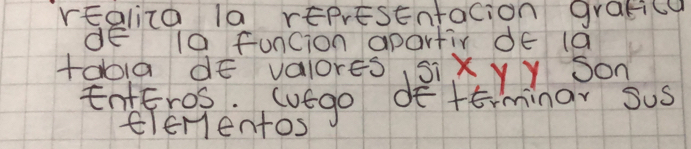 rEaliza la rEPrESEntacion grafica
dE la funcion apartir dE la
tabla dE valorES, Si x y y Son
EntEros. luEgo dE tErminar SuS
ElEMentos